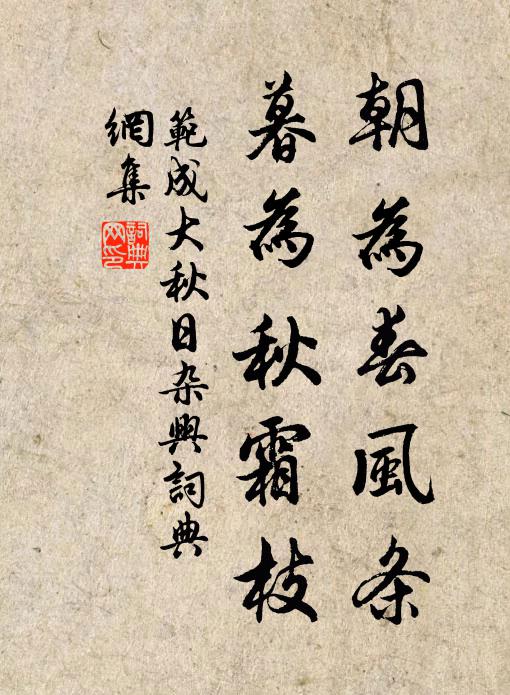 朝為春風条
暮為秋霜枝
範成大秋日杂興詞典
網集
詞典
网印